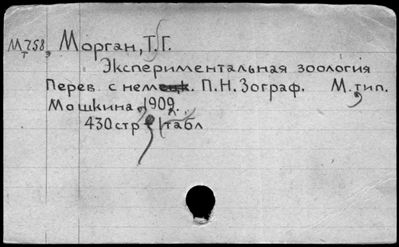 Мт758, Морган, Т.Г.
Экспериментальная зоология
Перев. с немецк. П.Н. Зограф. М. тип.
Мошкина, 1909г.
430 стр 1 табл